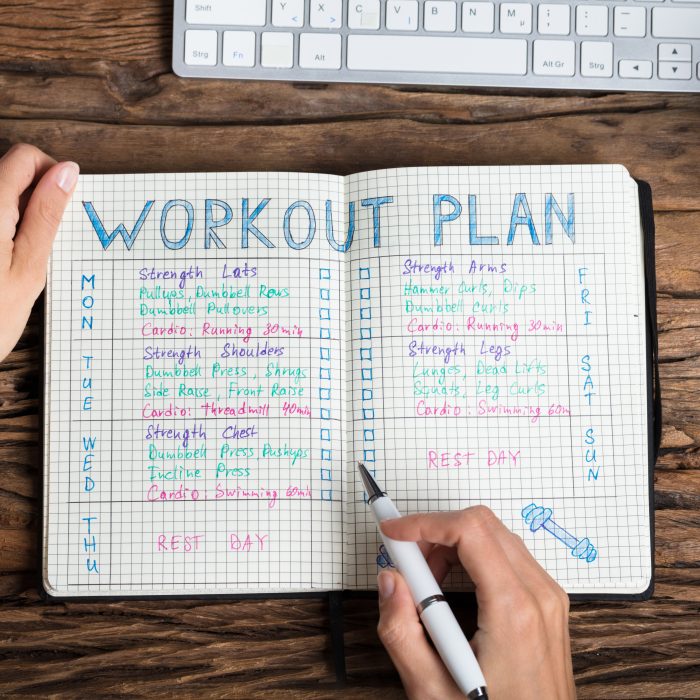 Shift
Y X C V B N M ; : _
Strg Fn Alt Alt Gr Strg
WORKOUT PLAN
MON
Strength Lats
Pullups, Dumbbell Rows
Dumbbell Pullovers
Cardio: Running 30 min
TUE
Strength Shoulders
Dumbbell Press, Shrugs
Side Raise, Front Raise
Cardio: Threadmill 40min
WED
Strength Chest
Dumbbell Press, Pushups
Incline Press
Cardio: Swimming 60min
THU
REST DAY
FRI
Strength Arms
Hammer Curls, Dips
Dumbbell Curls
Cardio: Running 30min
SAT
Strength Legs
Lunges, Dead Lifts
Squats, Leg Curls
Cardio: Swimming 60m
SUN
REST DAY